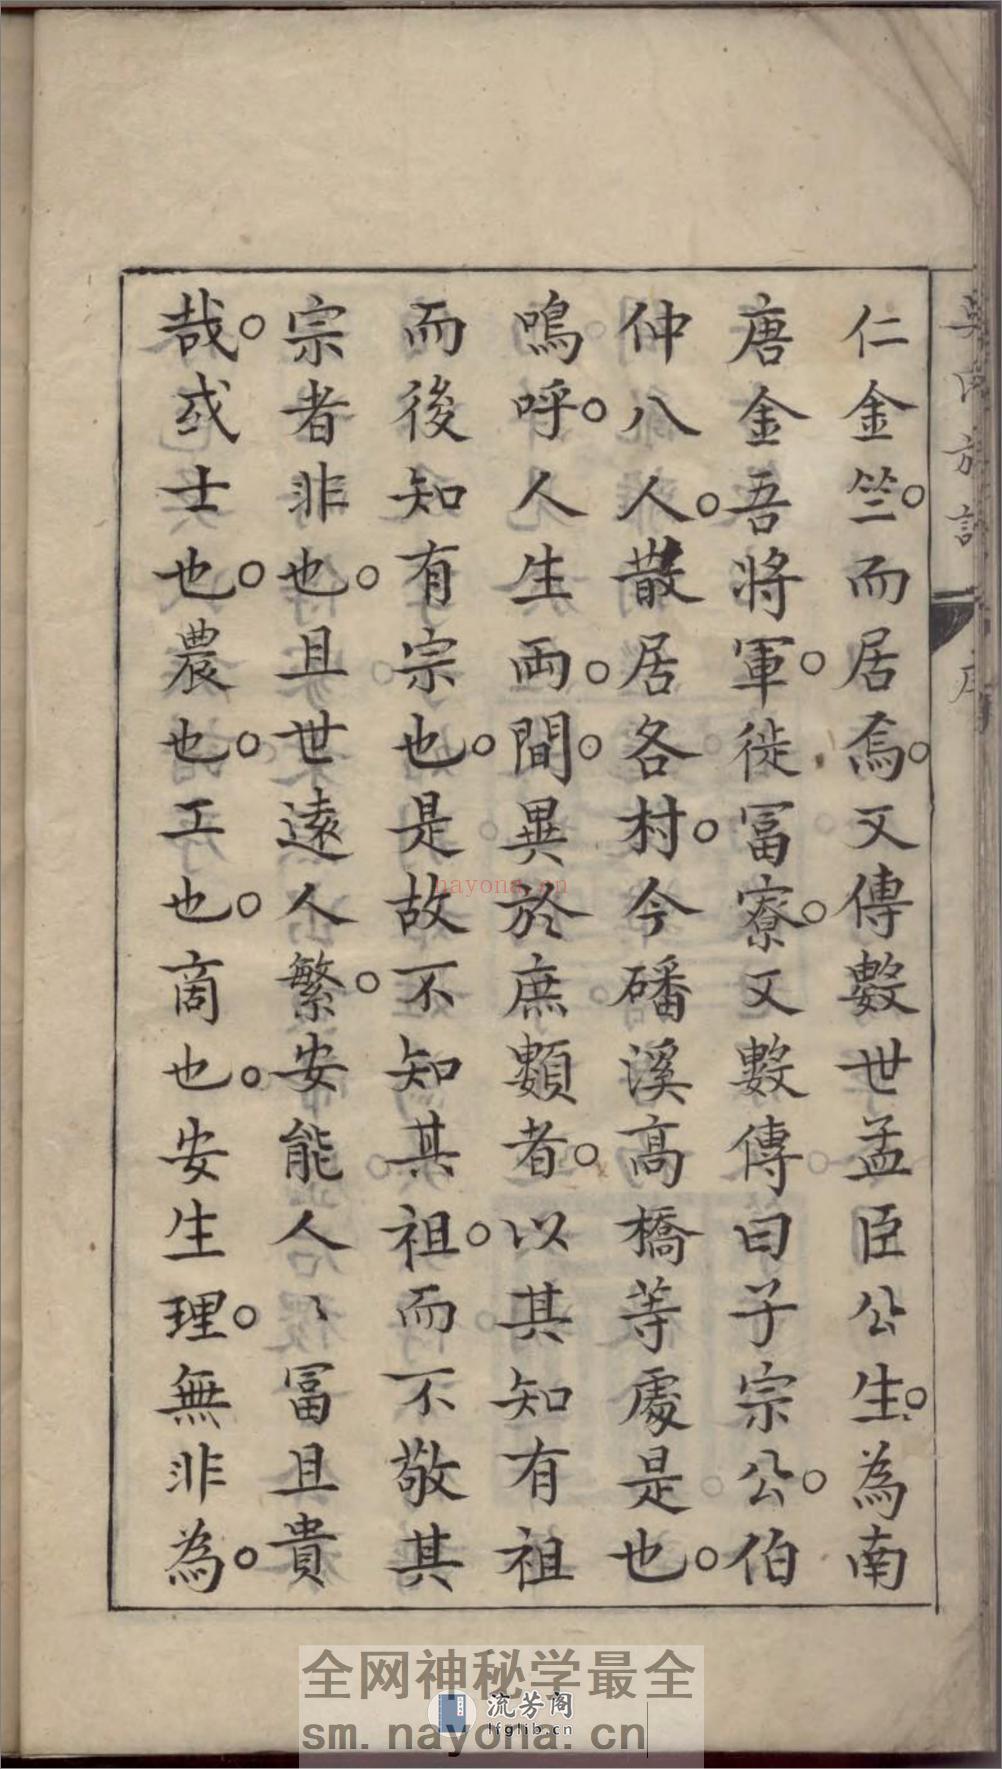 仁金竺。而居焉。又傳數世孟臣公生。為南
唐金吾將軍。徙冨寮。又數傳曰子宗公。伯
仲八人。散居各村。今磻溪髙橋等處是也。
鳴呼。人生両。間。異於庶類者。以其知有祖
而後知有宗也。是故不知其祖。而不敬其
宗者非也。且世遠人繁。安能人〻冨且貴
哉。或士也。農也。工也。商也。安生理。無非為。
吳氏族譜 序
nayona.cn
全网神秘学最全
流芳阁
lfglib.cn
sm.nayona.cn